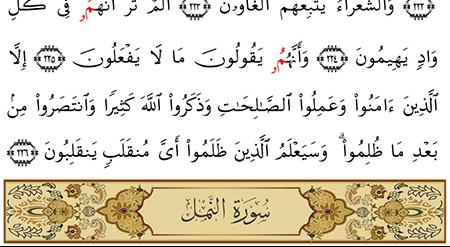 ﴿٢٢٢﴾ وَالشُّعَرَاءُ يَتَّبِعُهُمُ الْغَاوُۥنَ ﴿٢٢٣﴾ أَلَمْ تَرَ أَنَّهُمُۥ فِي كُلِّ
وَادٍ يَهِيمُونَ ﴿٢٢٤﴾ وَأَنَّهُمُۥ يَقُولُونَ مَا لَا يَفْعَلُونَ ﴿٢٢٥﴾ إِلَّا
الَّذِينَ ءَامَنُواْ وَعَمِلُواْ الصَّـٰلِحَـٰتِ وَذَكَرُواْ اللَّهَ كَثِيرًا وَانتَصَرُواْ مِنۢ
بَعْدِ مَا ظُلِمُواْ ۗ وَسَيَعْلَمُ الَّذِينَ ظَلَمُواْ أَيَّ مُنقَلَبٍ يَنقَلِبُونَ ﴿٢٢٦﴾
سُورَةُ النَّمْلِ